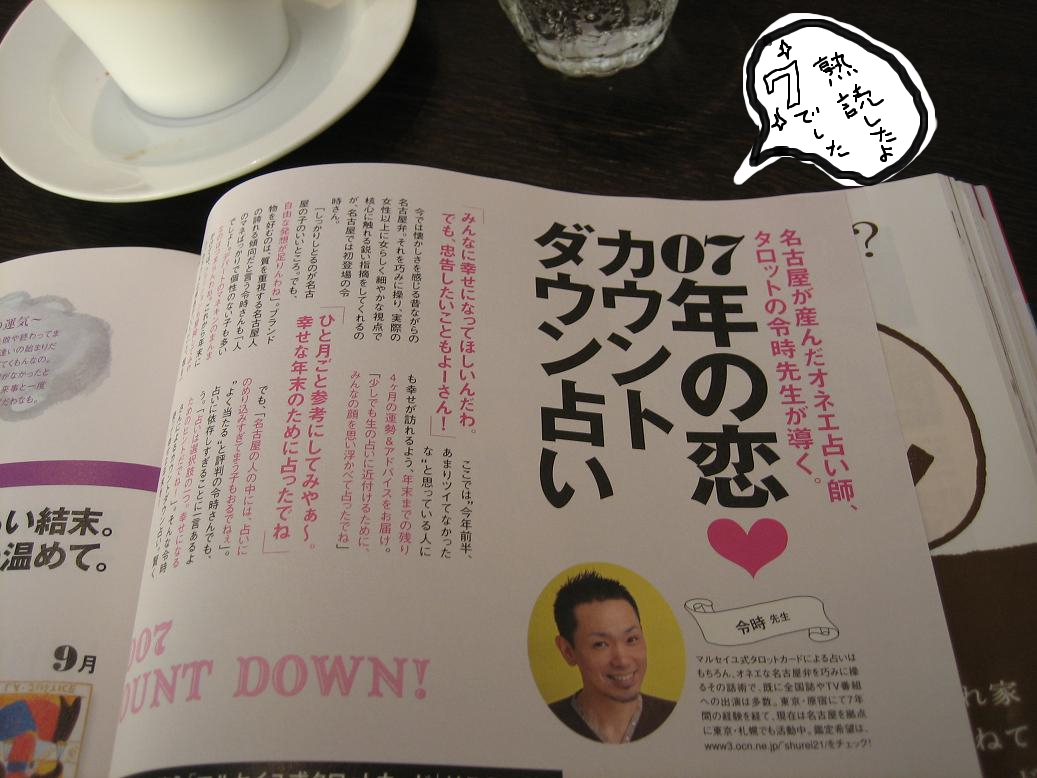 熟読したよ
でした
7
名古屋が産んだオネエ占い師、
タロットの令時先生が導く。
07年の恋
カウント
ダウン占い
「みんなに幸せになってほしいんだわ。
でも、忠告したいこともよーさん!」
今では懐かしさを感じる昔ながらの
名古屋弁。それを巧みに操り、実際の
女性以上に女らしく細やかな視点で
核心に触れる鋭い指摘をしてくれるの
が、名古屋では初登場の令
時さん。
「しっかりしとるのが名古
屋の子のいいところ。でも、
自由な発想が足りんわね」。ブランド
物を好むのは、質を重視する名古屋人
の誇れる傾向だと言う令時さんも「人
のマネばっかりで個性のない子も多い
「ひと月ごと参考にしてみやぁ〜。
幸せな年末のために占ったでね」
ここでは"今年前半、
あまりツイてなかった
な"と思っている人に
も幸せが訪れるよう、年末までの残り
4ヶ月の運勢&アドバイスをお届け。
「少しでも生の占いに近付けるために、
みんなの顔を思い浮かべて占ったでね」
でも、「名古屋の人の中には、占いに
のめり込みすぎてまう子もおるでねぇ」。
"よく当たる"と評判の令時さんでも、
占いに依存しすぎることに一言あるよ
う。「占いは選択技の一つ。幸せになる
令時 先生
マルセイユ式タロットカードによる占いは
もちろん、オネエな名古屋弁を巧みに操
るその話術で、既に全国誌やTV番組
への出演は多数。東京・原宿にて7年
間の経験を経て、現在は名古屋を拠点
に東京・札幌でも活動中。鑑定希望は、
www3.ocn.ne.jp/~shurei21/をチェック!
007
OUNT DOWN!
9月
の運気〜
い結末。
温めて。
?
れ家
ねて